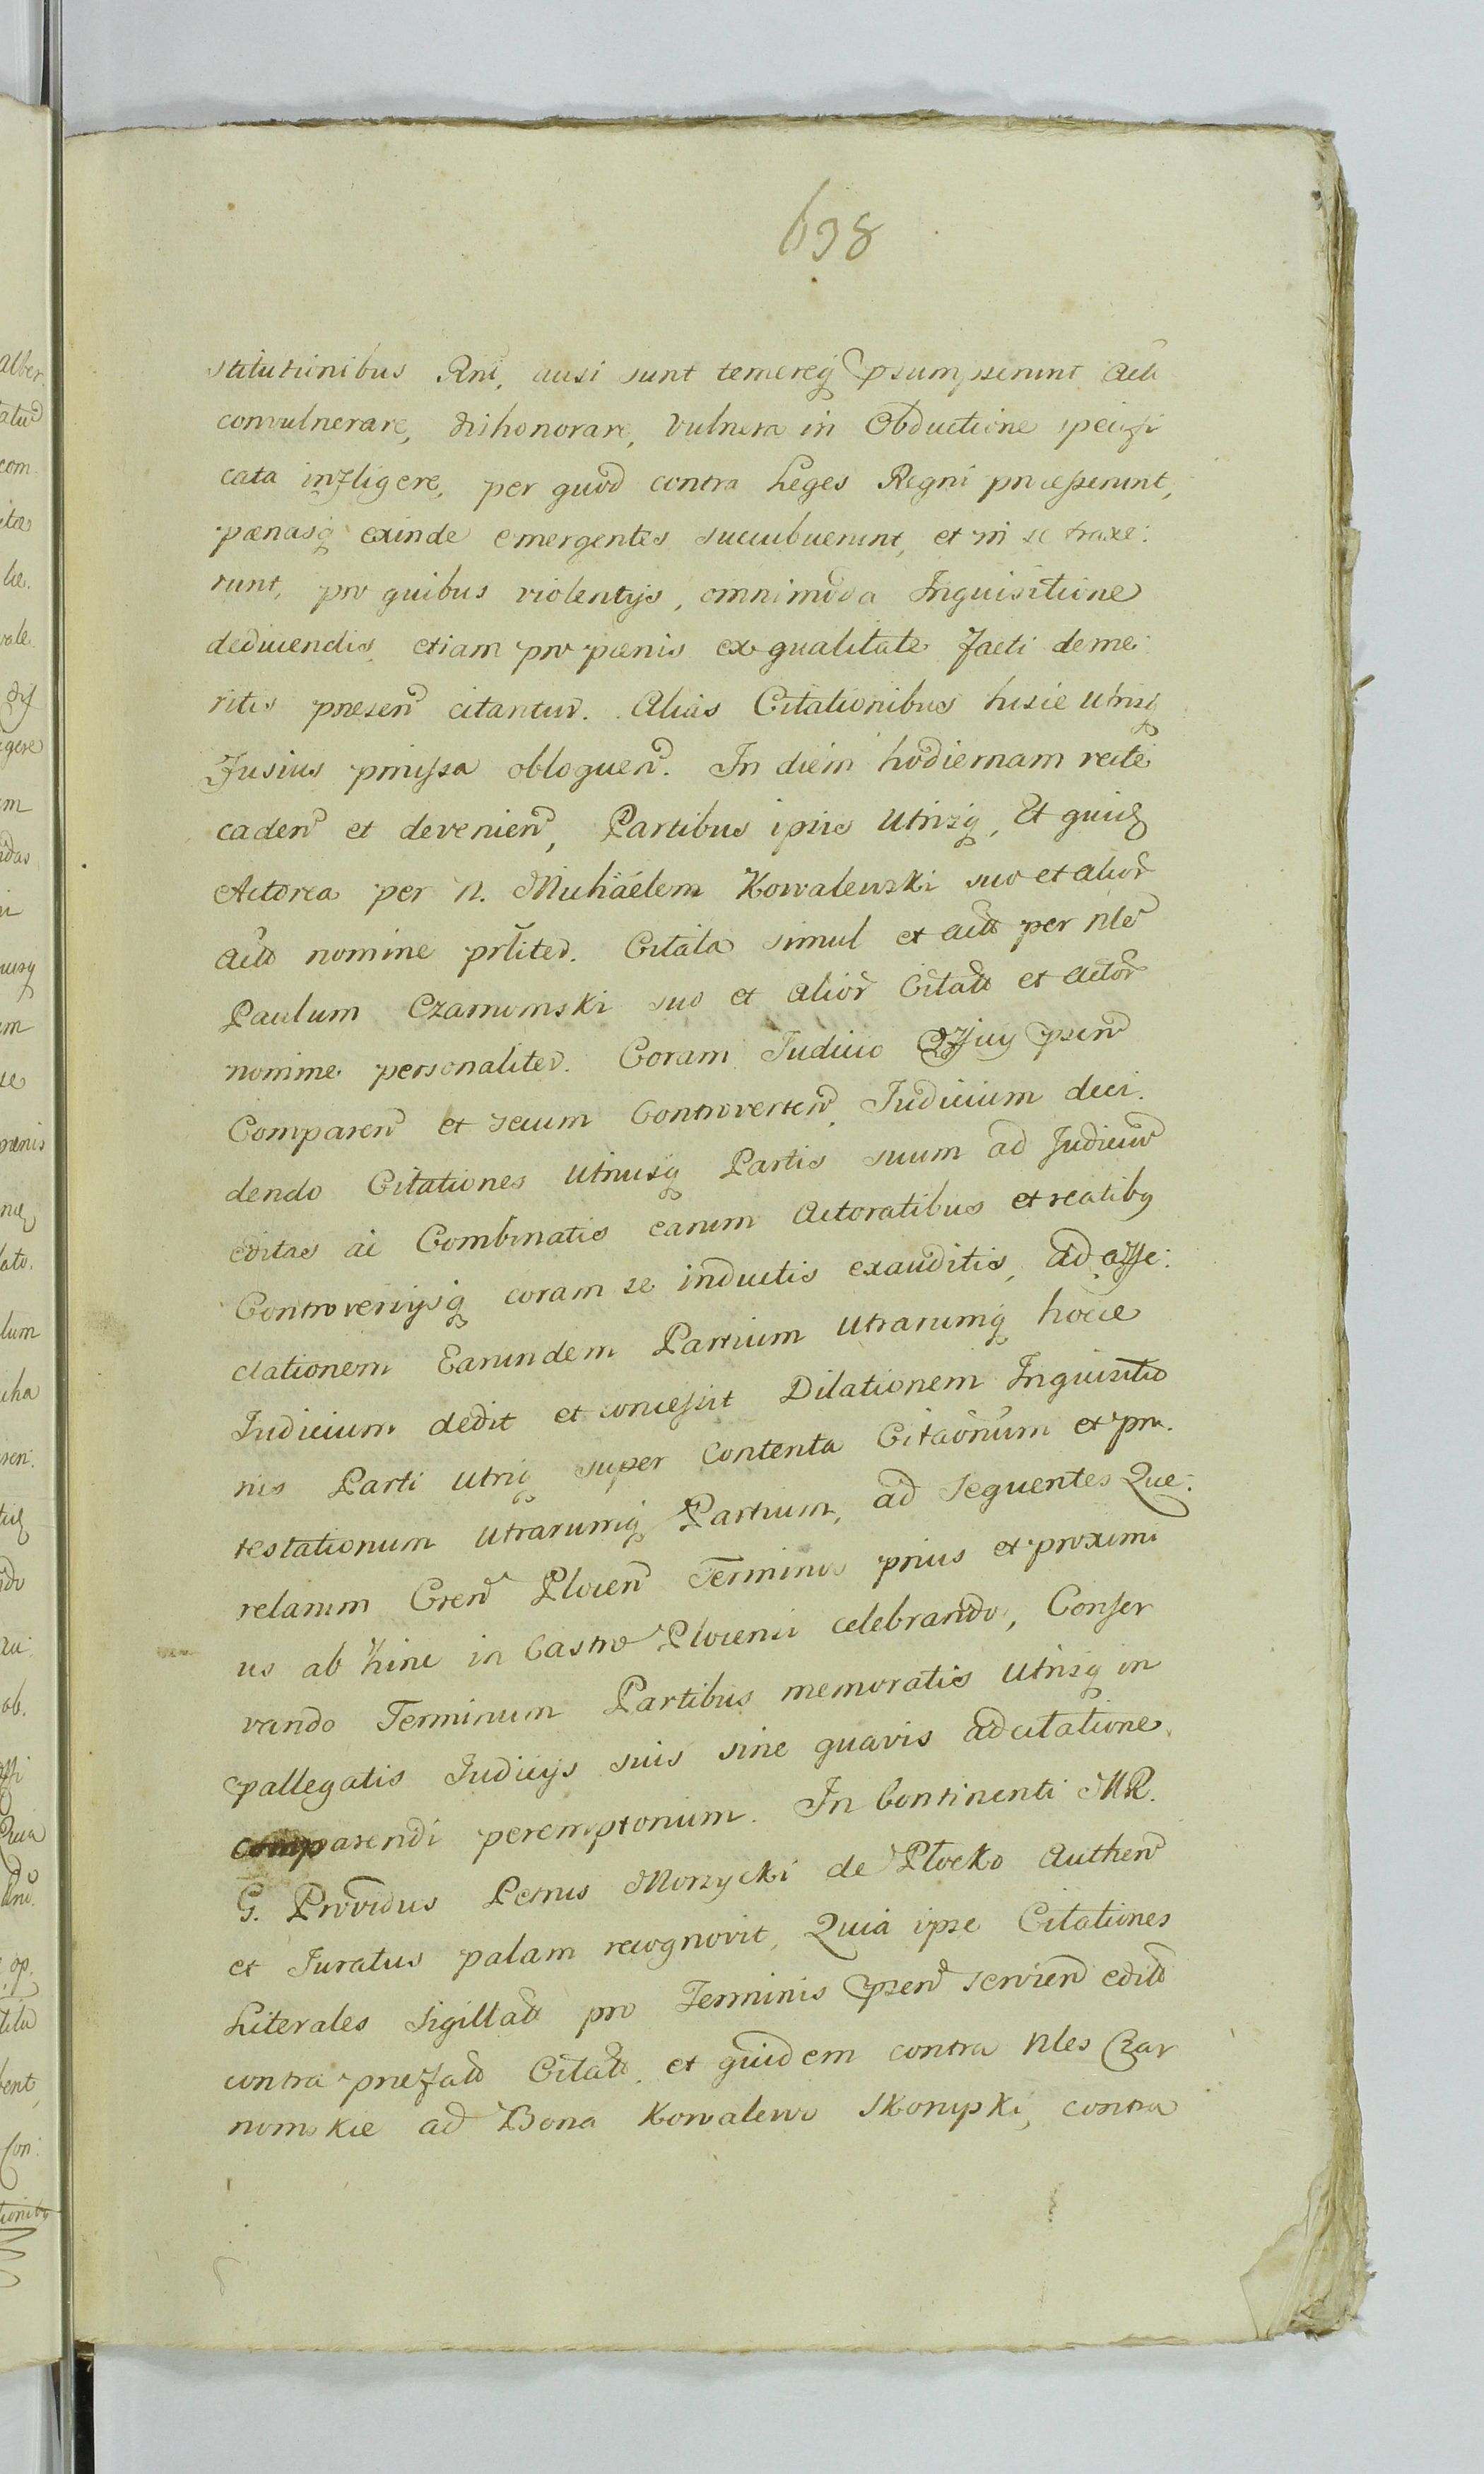 698
stitutionibus Rni, ausi sunt temereq psumpserunt Act
convulnerare, dishonorare, vulnera in Obductione specifi
cata infligere, per quod contra Leges Regni processerunt,
pænasq exinde emergentes succubuerunt, et in se traxe:
runt, pro quibus violentijs, omnimoda Inquisitione
deducendis, etiam pro pænis ex qualitate facti deme:
ritis præsen citantur. Alias Citationibus hisce utrisq
Fusius pmissa obloquen. In diem hodiernam recte
caden et devenien, Partibus ipsis utrisq, Et quid
Actorea per N. Michaelem Kowalewski suo et alior
actt nomine prliter. Citata simul et actt per Nle
Paulum Czarnomski suo et alior Citatt et actor
nomine personaliter. Coram Judicio psen
Comparen et secum Controverten, Judicium deci.
dendo Citationes utriusq Partis suum ad Judicium
editas ac Combinatis earum Actoratibus et reatibq
Controversijsq coram se inductis exauditis, ad affe:
ctationem Earundem Partium utrarumq hocce
Judicium dedit et concessit Dilationem Inquisitio
nis Parti utriq super contenta Citaonum et pro.
testationum utrarumq Partium, ad sequentes Que:
relarum Cren Plocen Terminos prius et proximi
us ab hinc in Castro Plocensi celebrando, Conser
vando Terminum Partibus memoratis utrisq in
pallegatis Judicijs suis sine quavis adcitatione
comparendi peremptorium. In Continenti MR.
G. Providus Petrus Morzycki de Plocko Authen
et Juratus palam recognovit, Quia ipse Citationes
Literales Sigillatt pro Terminis psen servien editt
contra præfatt Citatt. et quidem contra Nles Czar
nomskie ad Bona Kowalewo Skorupki, contra